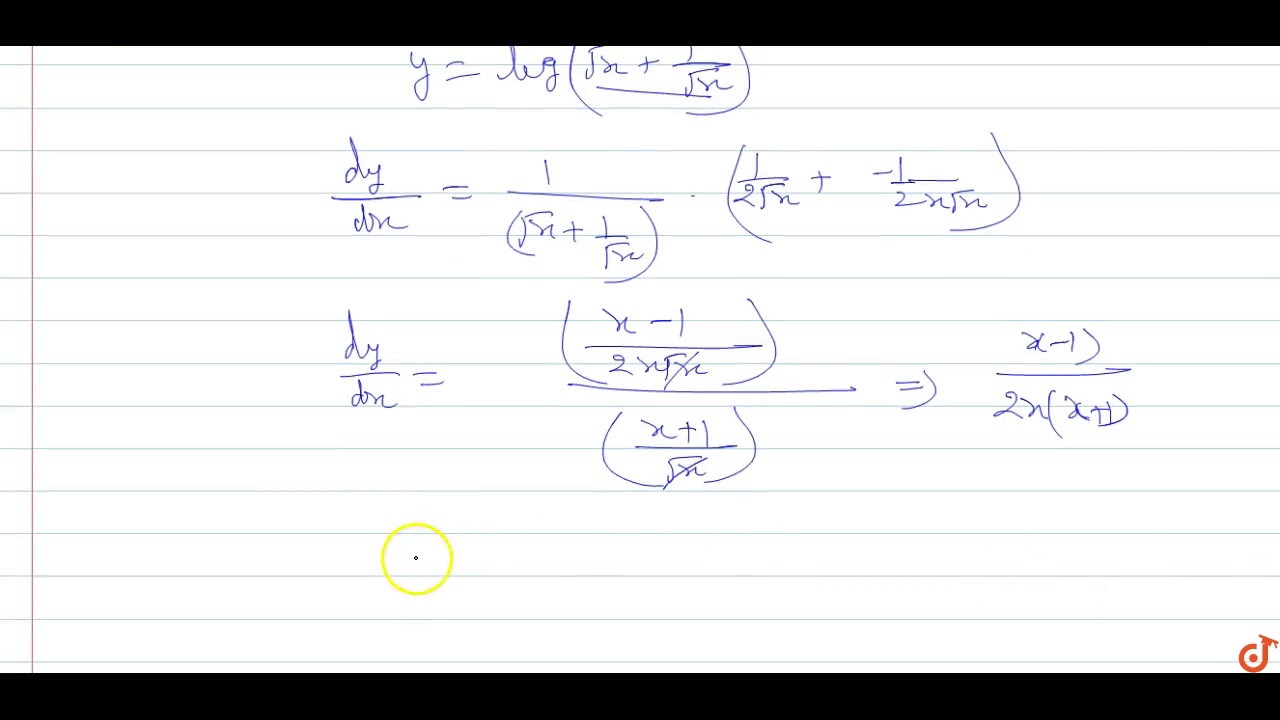 y = log(√x + 1/√x)
dy/dx = 1/(√x + 1/√x) · (1/2√x + -1/2x√x)
dy/dx = ((x-1)/2x√x)/((x+1)/√x) ⇒ x-1)/2x(x+1)